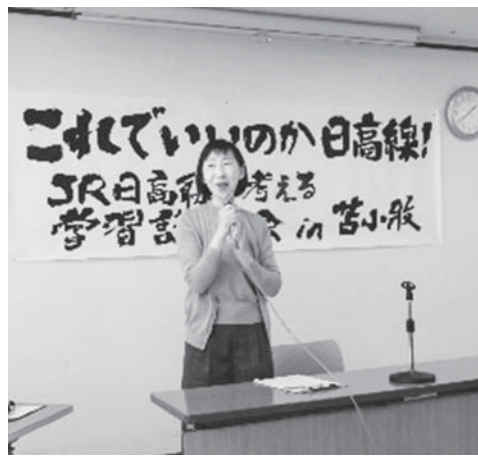 これでいいのか日高線!
JR日高線 考える
学習 会 in 苫小牧